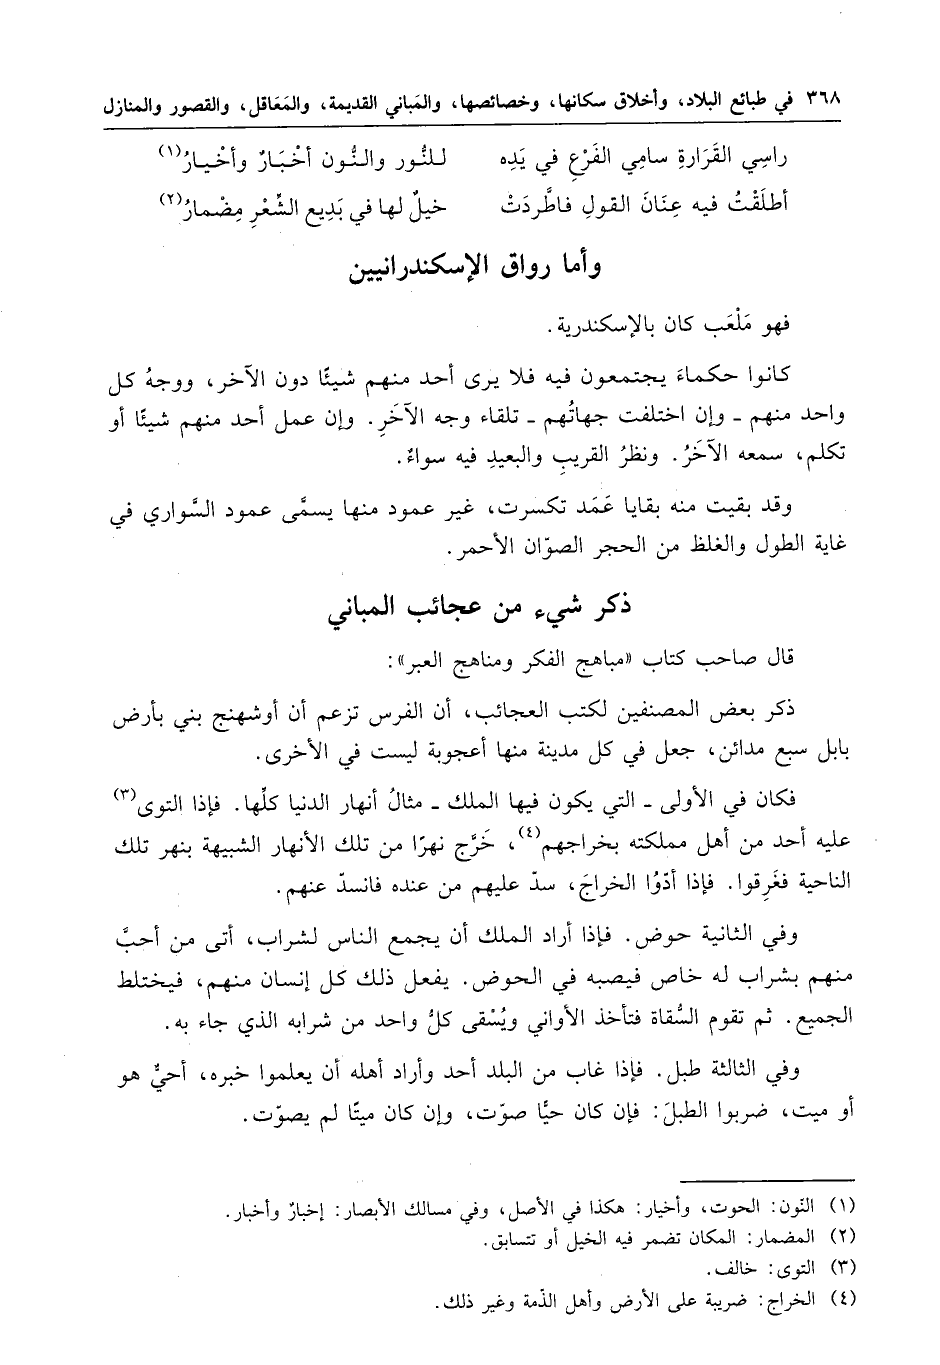 ٣٦٨ في طبائع البلاد، وأخلاق سكانها، وخصائصها، والمَباني القديمة، والمَعَاقل، والقصور والمنازل
راسِي القَرَارةِ سامِي الفَرْعِ في يَدِه للنُّور والنُّون أخْبَارٌ وأخْيارُ(١)
أطلَقْتُ فيه عِنَانَ القولِ فاطَّردَتْ خيلٌ لها في بَدِيع الشِّعْرِ مِضْمارُ(٢)
وأما رواق الإسكندرانيين
فهو مَلْعَب كان بالإسكندرية.
كانوا حكماءَ يجتمعون فيه فلا يرى أحد منهم شيئًا دون الآخر، ووجهُ كل
واحد منهم ـ وإن اختلفت جهاتُهم ـ تلقاء وجه الآخَرِ. وإن عمل أحد منهم شيئًا أو
تكلم، سمعه الآخَرُ. ونظرُ القريبِ والبعيدِ فيه سواءٌ.
وقد بقيت منه بقايا عَمَد تكسرت، غير عمود منها يسمَّى عمود السَّواري في
غاية الطول والغلظ من الحجر الصوّان الأحمر.
ذكر شيء من عجائب المباني
قال صاحب كتاب «مباهج الفكر ومناهج العبر»:
ذكر بعض المصنفين لكتب العجائب، أن الفرس تزعم أن أوشهنج بني بأرض
بابل سبع مدائن، جعل في كل مدينة منها أعجوبة ليست في الأخرى.
فكان في الأولى ـ التي يكون فيها الملك ـ مثالُ أنهار الدنيا كلِّها. فإذا التوى(٣)
عليه أحد من أهل مملكته بخراجهم(٤)، خَرَّج نهرًا من تلك الأنهار الشبيهة بنهر تلك
الناحية فغَرِقوا. فإذا أدّوُا الخراجَ، سدّ عليهم من عنده فانسدّ عنهم.
وفي الثانية حوض. فإذا أراد الملك أن يجمع الناس لشراب، أتى من أحبَّ
منهم بشراب له خاص فيصبه في الحوض. يفعل ذلك كل إنسان منهم، فيختلط
الجميع. ثم تقوم السُّقاة فتأخذ الأواني ويُسْقى كلُّ واحد من شرابه الذي جاء به.
وفي الثالثة طبل. فإذا غاب من البلد أحد وأراد أهله أن يعلموا خبره، أحيٌّ هو
أو ميت، ضربوا الطبلَ: فإن كان حيًّا صوّت، وإن كان ميتًا لم يصوّت.
(١) النّون: الحوت، وأخيار: هكذا في الأصل، وفي مسالك الأبصار: إخبارٌ وأخبار.
(٢) المضمار: المكان تضمر فيه الخيل أو تتسابق.
(٣) التوى: خالف.
(٤) الخراج: ضريبة على الأرض وأهل الذّمة وغير ذلك.